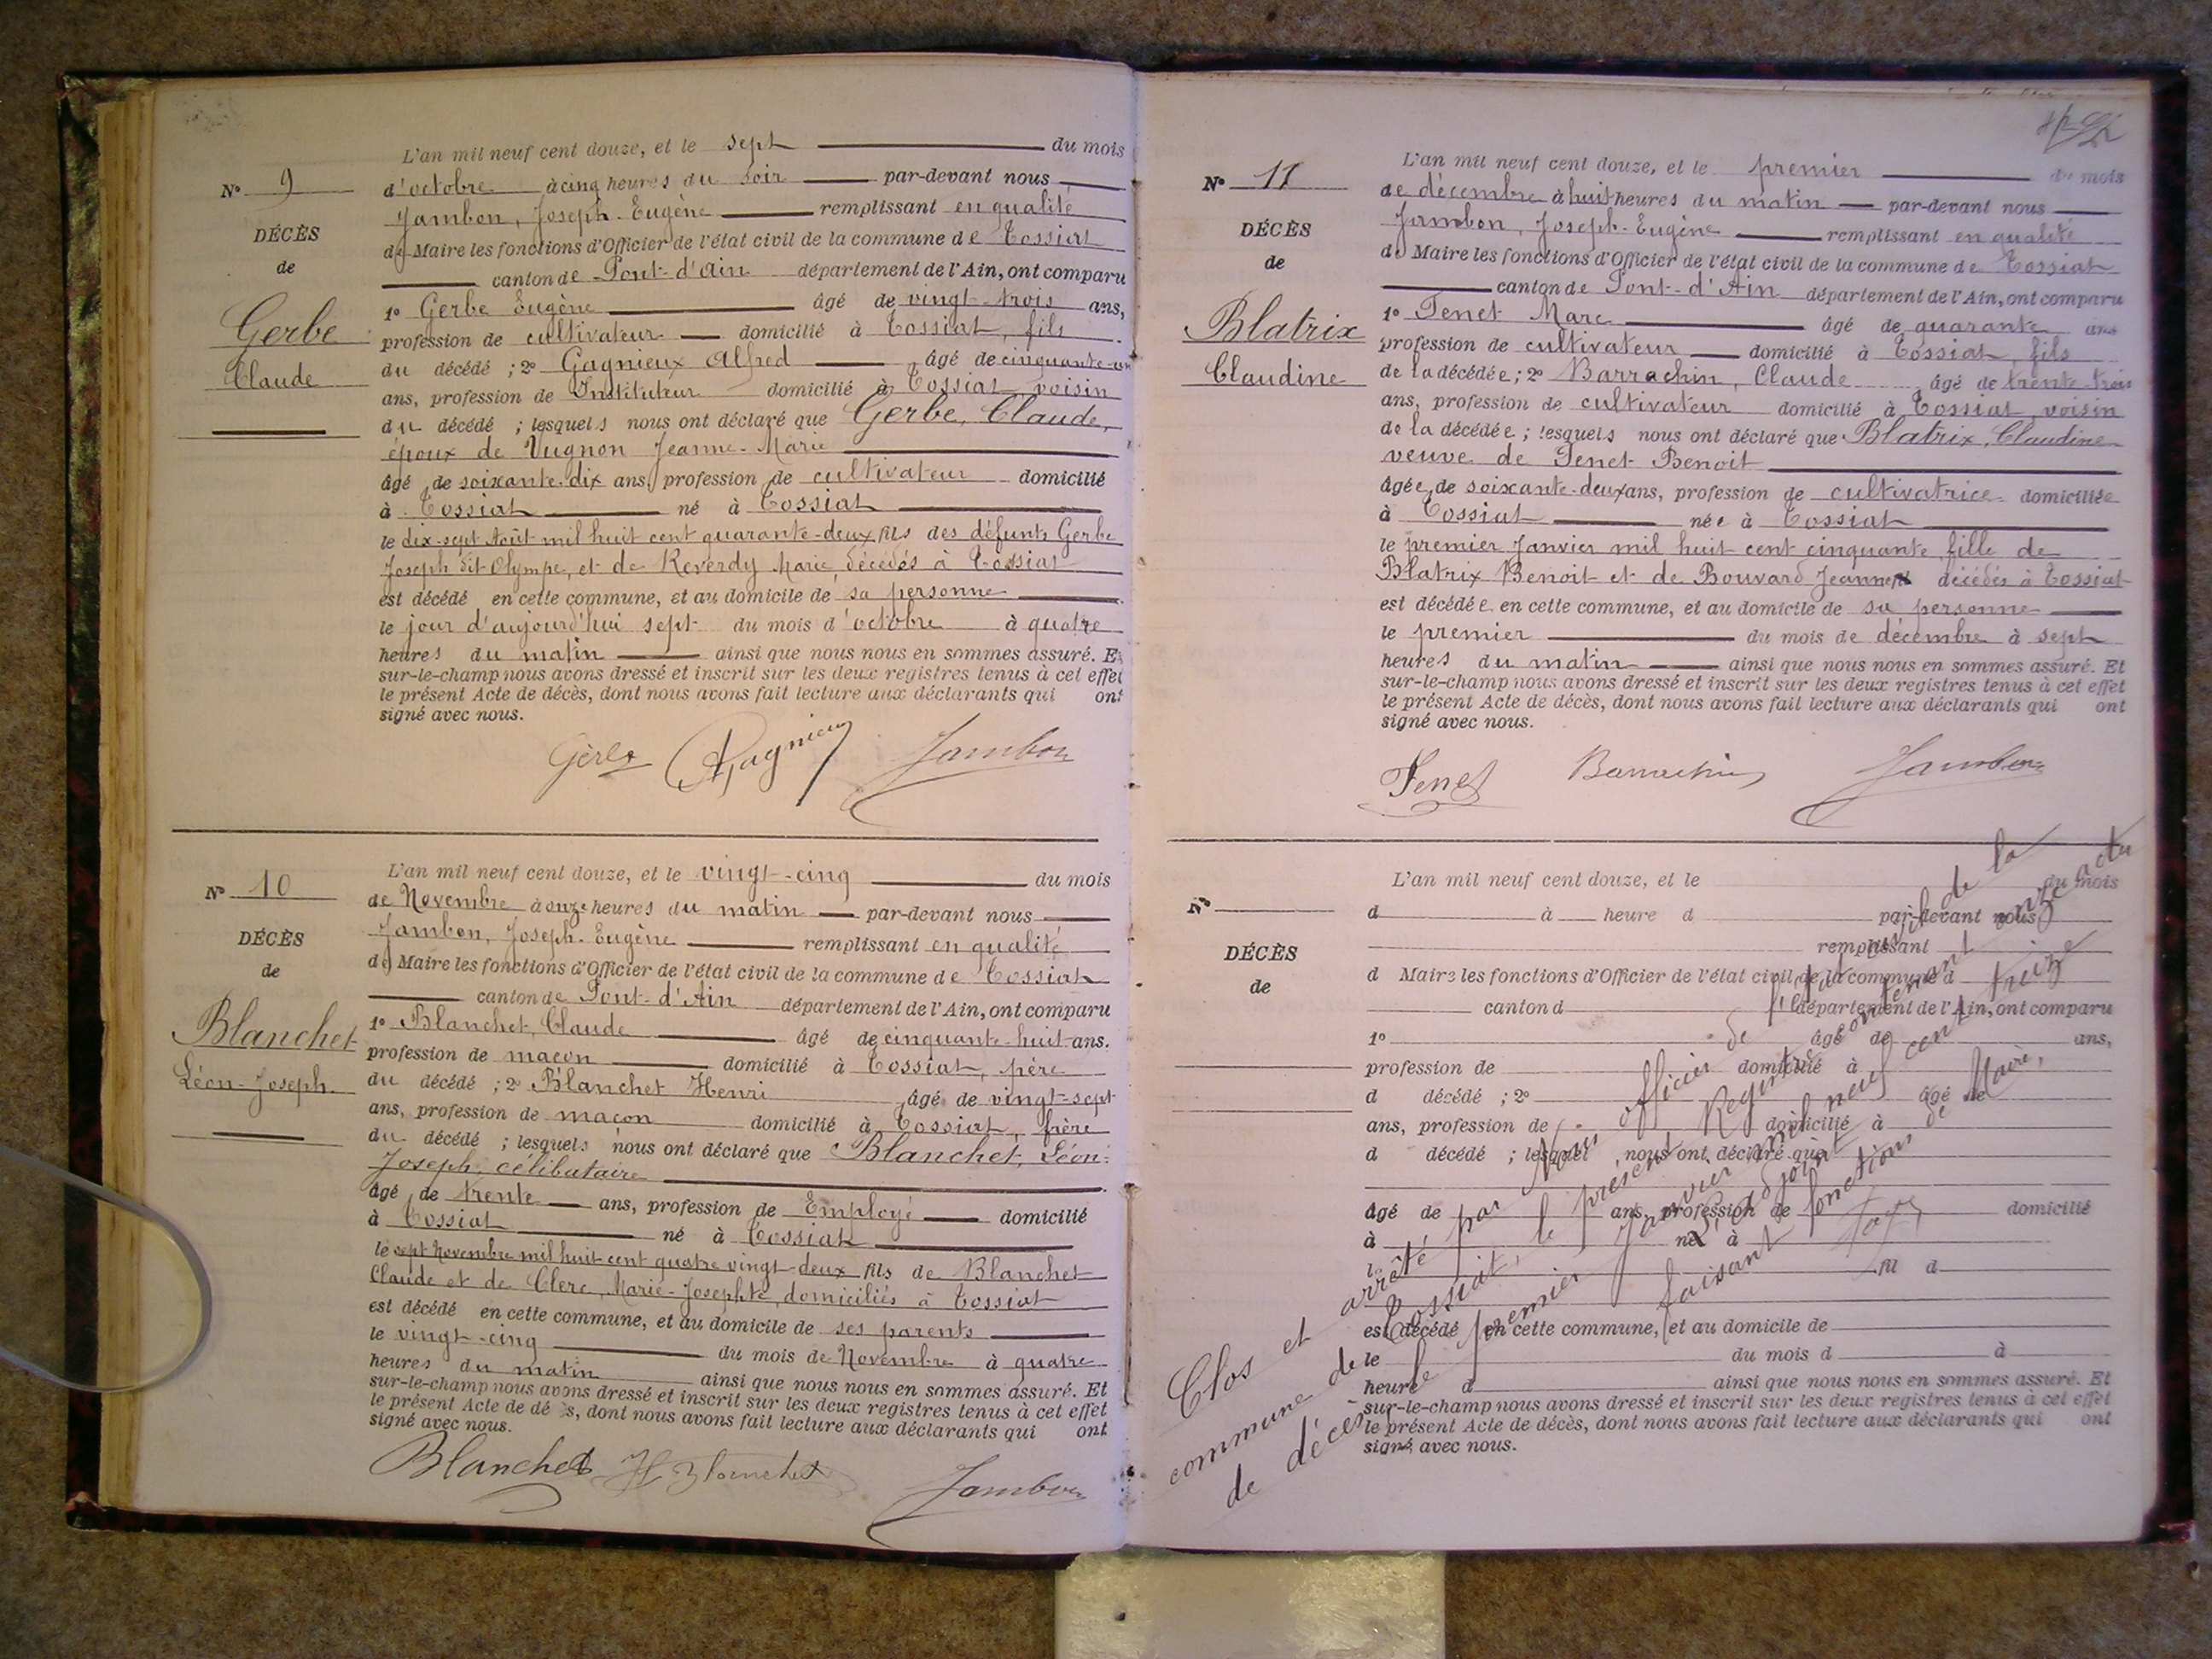 L'an mil neuf cent douze, et le sept du mois
N° 9
d'octobre à cinq heures du soir par-devant nous
Jambon, Joseph-Eugène remplissant en qualité
DÉCÈS
de Maire les fonctions d'Officier de l'état civil de la commune de Tossiat
de
canton de Pont-d'Ain département de l'Ain, ont comparu
1° Gerbe Eugène âgé de vingt-trois ans,
Gerbe
profession de cultivateur domicilié à Tossiat, fils
du décédé ; 2° Gagnieux Alfred âgé de cinquante-un
Claude
ans, profession de Instituteur domicilié à Tossiat voisin
du décédé ; lesquels nous ont déclaré que Gerbe, Claude,
époux de Vugnon Jeanne-Marie
âgé de soixante-dix ans, profession de cultivateur domicilié
à Tossiat né à Tossiat
le dix-sept Août mil huit cent quarante-deux fils des défunts Gerbe
Joseph dit Olympe, et de Reverdy Marie, décédés à Tossiat
est décédé en cette commune, et au domicile de sa personne
le jour d'aujourd'hui sept du mois d'octobre à quatre
heures du matin ainsi que nous nous en sommes assuré. Et
sur-le-champ nous avons dressé et inscrit sur les deux registres tenus à cet effet
le présent Acte de décès, dont nous avons fait lecture aux déclarants qui ont
signé avec nous.
Gerbe Gagnieux Jambon
L'an mil neuf cent douze, et le vingt-cinq du mois
N° 10
de Novembre à onze heures du matin par-devant nous
Jambon, Joseph-Eugène remplissant en qualité
DÉCÈS
de Maire les fonctions d'Officier de l'état civil de la commune de Tossiat
de
canton de Pont-d'Ain département de l'Ain, ont comparu
1° Blanchet, Claude âgé de cinquante-huit ans.
Blanchet
profession de maçon domicilié à Tossiat, père
Léon-Joseph
du décédé ; 2° Blanchet Henri âgé de vingt-sept
ans, profession de maçon domicilié à Tossiat, frère
du décédé ; lesquels nous ont déclaré que Blanchet, Léon-
Joseph, célibataire
âgé de trente ans, profession de Employé domicilié
à Tossiat né à Tossiat
le sept Novembre mil huit cent quatre vingt-deux fils de Blanchet
Claude et de Clerc, Marie-Josephte, domiciliés à Tossiat
est décédé en cette commune, et au domicile de ses parents
le vingt-cinq du mois de Novembre à quatre
heures du matin ainsi que nous nous en sommes assuré. Et
sur-le-champ nous avons dressé et inscrit sur les deux registres tenus à cet effet
le présent Acte de dé s, dont nous avons fait lecture aux déclarants qui ont
signé avec nous.
Blanchet H Blanchet Jambon
L'an mil neuf cent douze, et le premier du mois
N° 11
de décembre à huit heures du matin par-devant nous
Jambon, Joseph-Eugène remplissant en qualité
DÉCÈS
de Maire les fonctions d'Officier de l'état civil de la commune de Tossiat
de
canton de Pont-d'Ain département de l'Ain, ont comparu
1° Tenet Marc âgé de quarante ans
Blatrix
profession de cultivateur domicilié à Tossiat, fils
Claudine
de la décédée ; 2° Barrachin, Claude âgé de trente-trois
ans, profession de cultivateur domicilié à Tossiat voisin
de la décédée ; lesquels nous ont déclaré que Blatrix, Claudine
veuve de Tenet Benoit
âgée de soixante-deux ans, profession de cultivatrice domiciliée
à Tossiat née à Tossiat
le premier Janvier mil huit cent cinquante fille de
Blatrix Benoit et de Bouvard Jeanne décédés à Tossiat
est décédée en cette commune, et au domicile de sa personne
le premier du mois de décembre à sept
heures du matin ainsi que nous nous en sommes assuré. Et
sur-le-champ nous avons dressé et inscrit sur les deux registres tenus à cet effet
le présent Acte de décès, dont nous avons fait lecture aux déclarants qui ont
signé avec nous.
Tenet Barrachin Jambon
L'an mil neuf cent douze, et le du mois
N°
d à heure d par-devant nous
remplissant
DÉCÈS
d Maire les fonctions d'Officier de l'état civil de la commune d
de
canton d département de l'Ain, ont comparu
1° âgé de ans,
profession de domicilié à
d décédé ; 2° âgé de
ans, profession de domicilié à
d décédé ; lesquel nous ont déclaré que
âgé de ans, profession de domicilié
à né à
le fil d
est décédé en cette commune, et au domicile de
le du mois d à
heure d ainsi que nous nous en sommes assuré. Et
sur-le-champ nous avons dressé et inscrit sur les deux registres tenus à cet effet
le présent Acte de décès, dont nous avons fait lecture aux déclarants qui ont
signé avec nous.
Clos et arrêté par Nous officier de l'état civil de la
commune de Tossiat, le présent Registre contenant onze actes
de décès le premier Janvier mil neuf cent treize
L'adjoint
faisant fonctions de Maire,